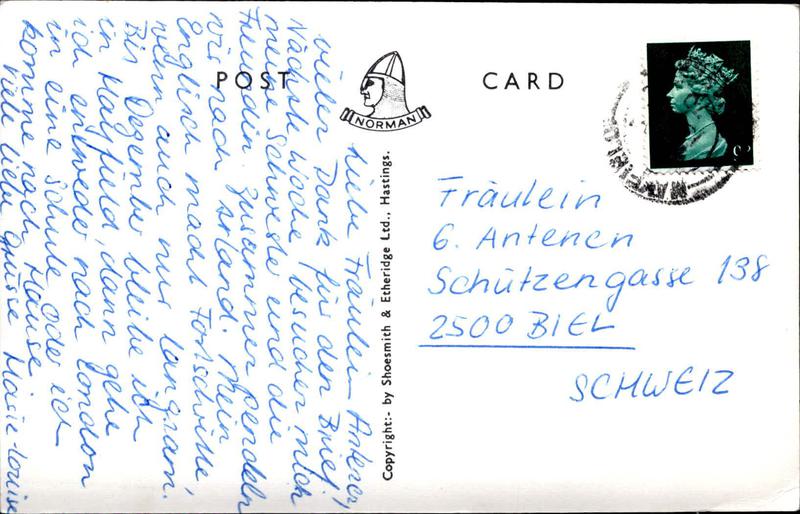 POST CARD
NORMAN
Liebe Fräulein Antenen,
vielen Dank für den Brief.
Nächste Woche besuchen mich
meine Schwester und die
Freundin. Zusammen pendeln
wir nach Irland. Mein
Englisch macht Fortschritte
wenn auch nur langsam.
Bis Dezember bleibe ich
in Mayfield, dann gehe
ich entweder nach London
in eine Schule oder ich
komme nach Hause
Viele liebe Grüsse Marie-Louise
Copyright:- by Shoesmith & Etheridge Ltd., Hastings.
Fräulein
G. Antenen
Schützengasse 138
2500 BIEL
SCHWEIZ